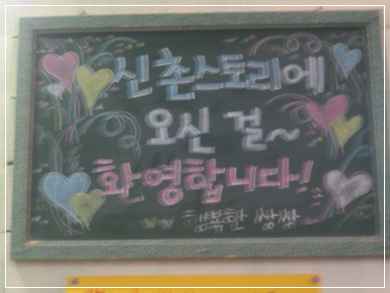 신촌스토리에
오신 걸~
환영합니다!
행복한 쌍쌍